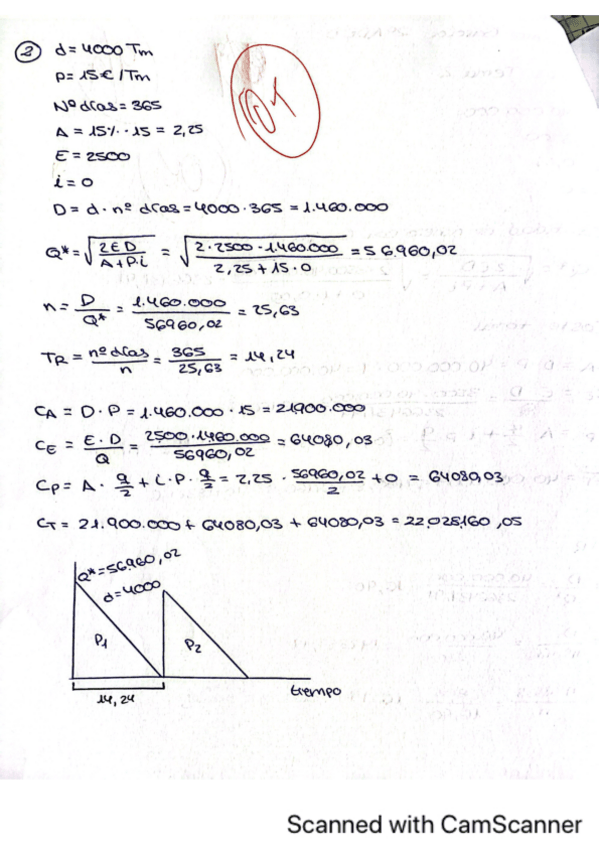 ② d = 4000 Tm
P = 15€/Tm
Nº días = 365
A = 15% · 15 = 2,25
E = 2500
i = 0
D = d · nº días = 4000 · 365 = 1.460.000
Q* = √(2ED / A+P.i) = √(2·2500·1.460.000 / 2,25+15·0) = 56.960,02
n = D / Q* = 1.460.000 / 56960,02 = 25,63
TR = nº días / n = 365 / 25,63 = 14,24
CA = D · P = 1.460.000 · 15 = 21.900.000
CE = E·D / Q = 2500·1.460.000 / 56960,02 = 64080,03
CP = A · q/2 + i·P · q/2 = 2,25 · 56960,02 / 2 + 0 = 64080,03
CT = 21.900.000 + 64080,03 + 64080,03 = 22.028.160,05
Q* = 56960,02
d = 4000
P1
P2
14,24
tiempo
Scanned with CamScanner